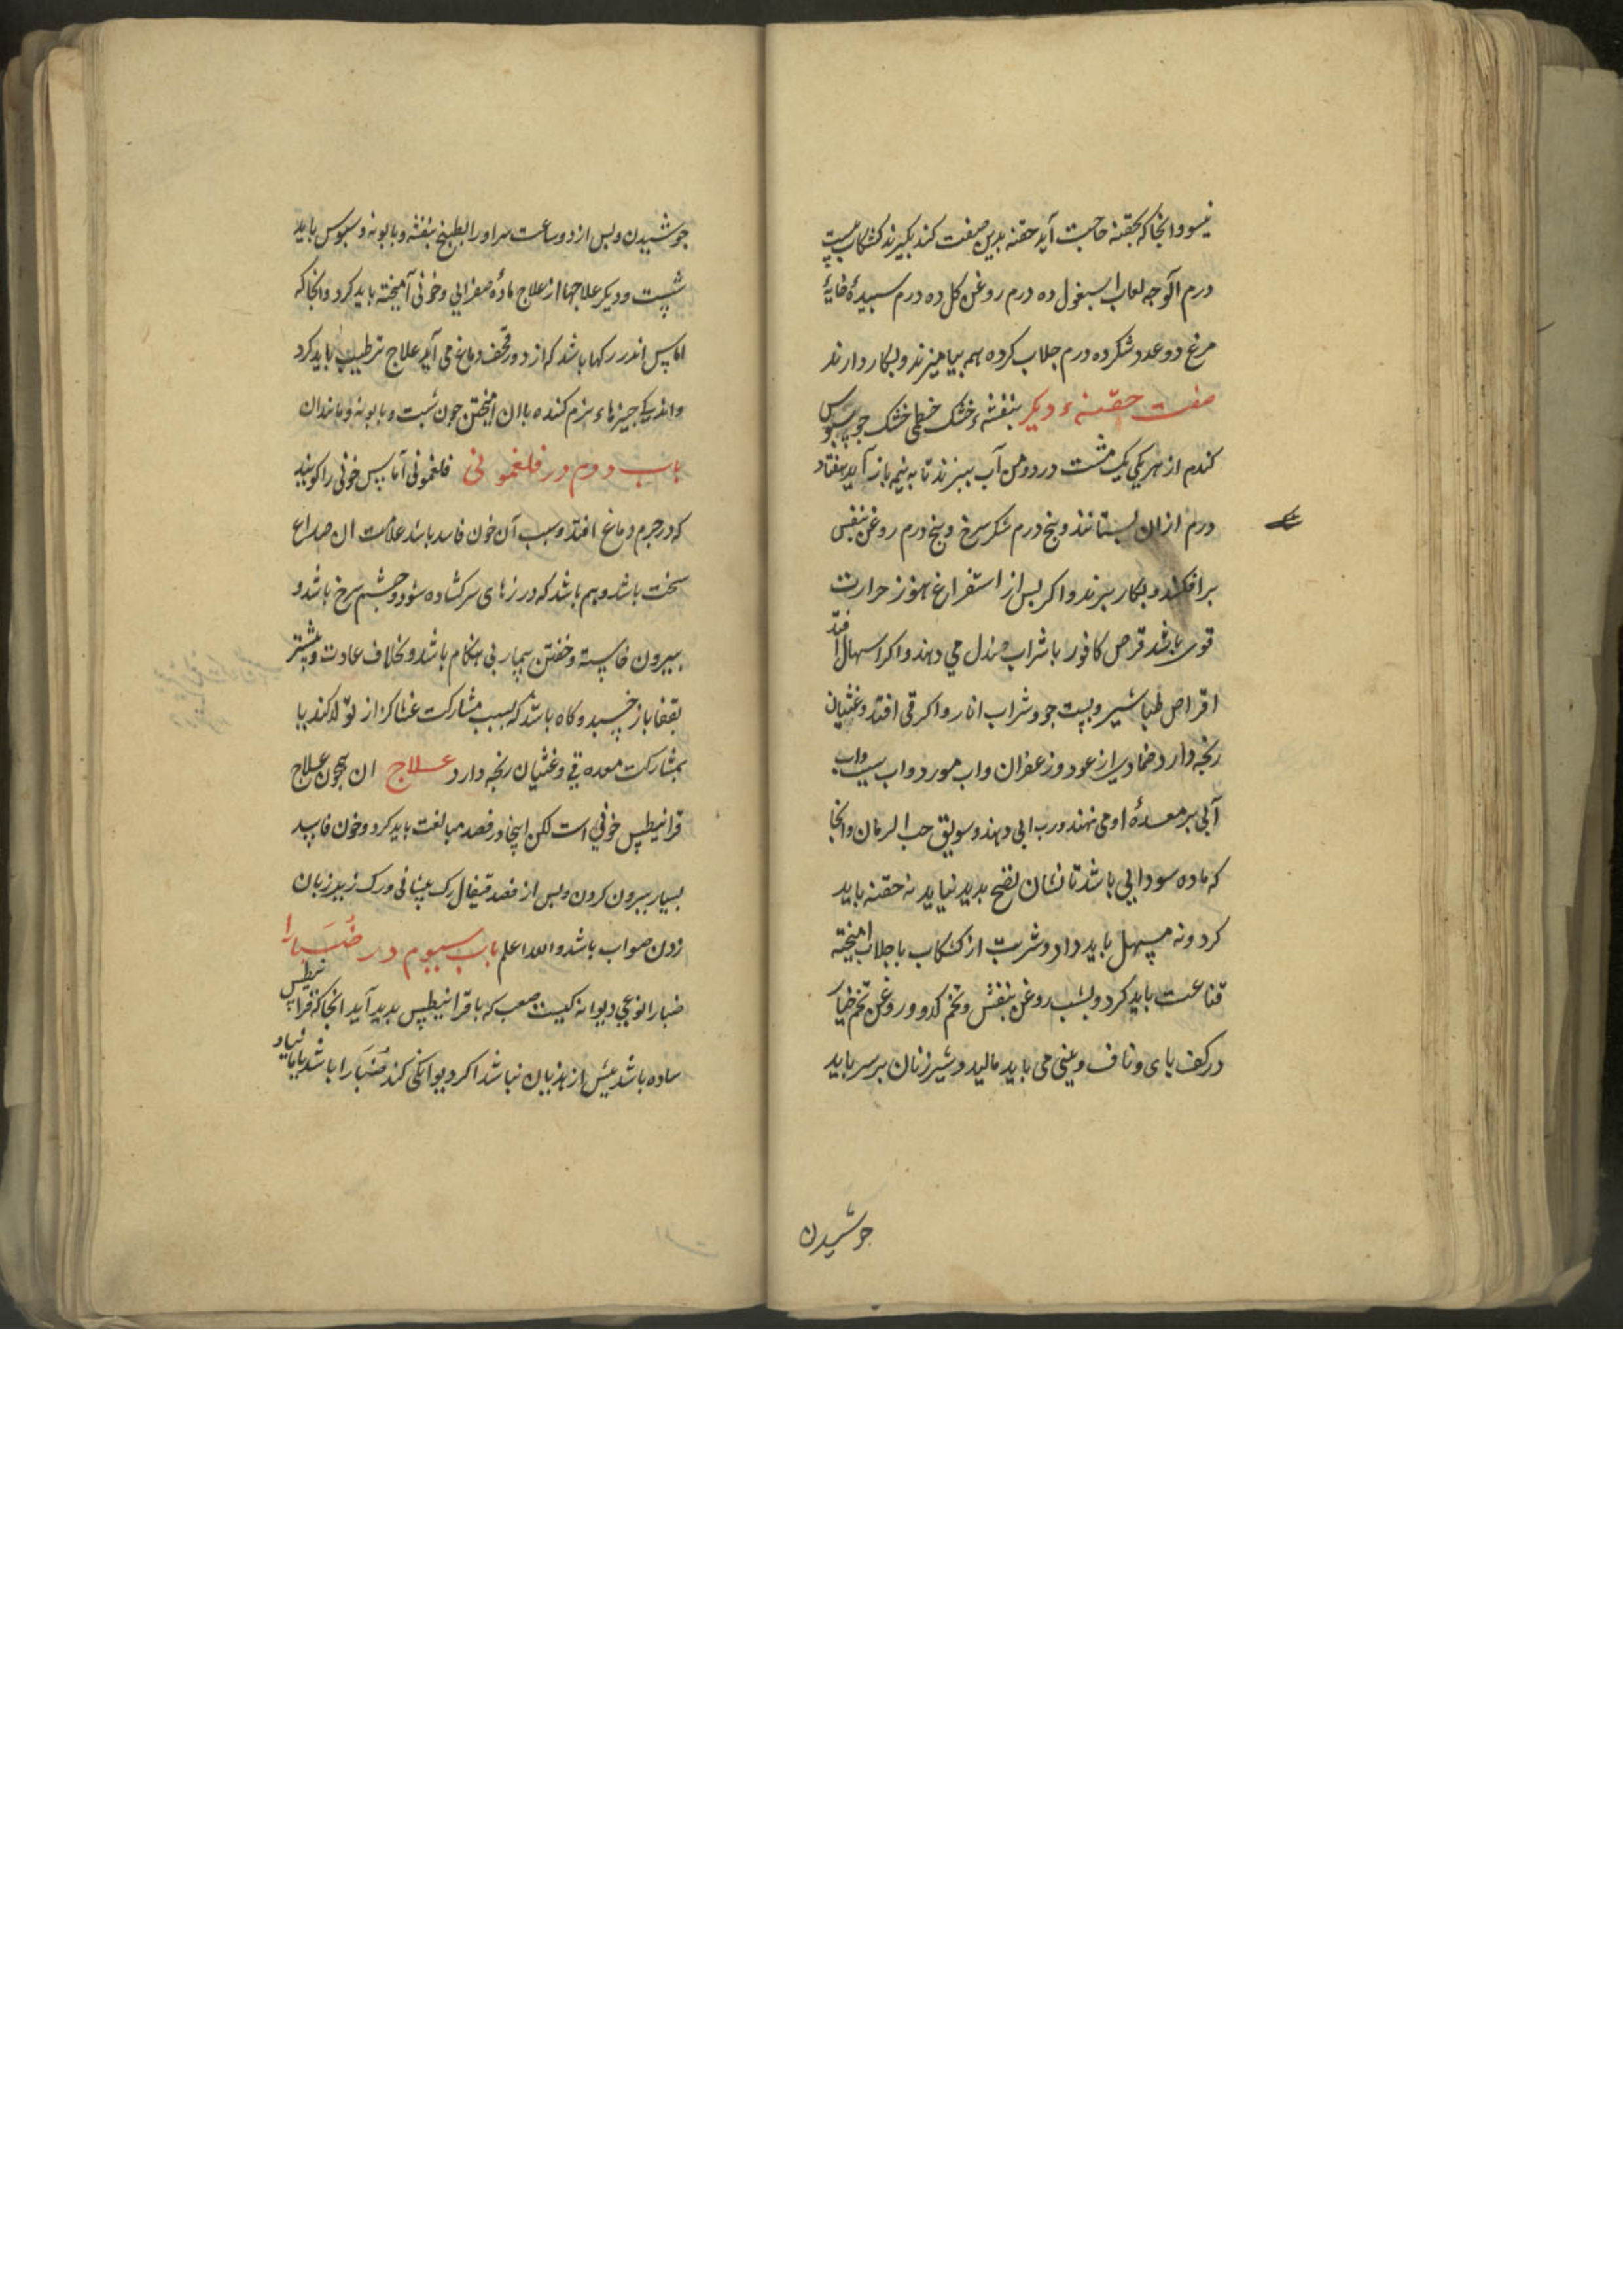 نیسو وانجا که بحقنه حاجت آید حقنه بدین صفت کند بکیرند کشکاب بیست
درم آلوجه لعاب اسبغول ده درم روغن کل ده درم سبیدۀ خایۀ
مرغ دو عدد شکر ده درم جلاب کرده بهم بیامیزند و بکار دارند
صفت حقنهء دیکر بنفشهء خشک خطمی خشک جو سبوس
کندم از هر یکی یک مشت در دو من آب ببزند تا به نیمه باز آید هفتاد
درم ازان بستانند و بنج درم شکر سرخ و بنج درم روغن بنفش
برافکنند و بکار برند و اکر بس از استفراغ هنوز حرارت
قوی باشد قرص کافور با شراب صندل می دهند و اکر اسهال افتد
اقراص طباشیر و بست جو و شراب انار و اکر قی افتد و غثیان
رنجه دارد ضمادی از عود و زعفران واب مورد واب سیب واب
آبی بر معدۀ او می نهند و رب ابی دهند و سویق حب الرمان وانجا
که ماده سودایی باشد تا نشان نضج بدید نیاید نه حقنه باید
کرد و نه مسهل باید داد و شربت از کشکاب با جلاب امیخته
قناعت باید کرد و بشب روغن بنفش و تخم کدو و روغن تخم خیار
در کف بای و ناف و بینی می باید مالید و شیر زنان بر سر باید
جوشیدن
جوشیدن و بس از دو ساعت سر او را بطبیخ بنفشه و بابونه و سبوس باید
شست و دیکر علاجها از علاج مادۀ صفرایی و خونی آمیخته باید کرد وانجا که
اماس اندر رکها باشد که از دور قحف دماغ می آید علاج ترطیب باید کرد
واندکی جیزهاء نرم کننده باان امیختن جون شبت و بابونه و مانندان
باب دوم در فلغمونی فلغمونی آماس خونی را کویند
که در جرم دماغ افتد و سبب آن خون فاسد باشد علامت ان صداع
سخت باشد و بیم باشد که درزهای سر کشاده شود و جشم سرخ باشد و
بیرون خاسته و خفتن بیمار بی هنکام باشد و بخلاف عادت و بیشتر
بقفا باز خسبد و کاه باشد که بسبب مشارکت غشا کزاز تولد کند یا
بمشارکت معده قی و غثیان رنجه دارد علاج ان همچون علاج
قرانیطس خونی است لکن اینجا در فصد مبالغت باید کرد و خون فاسد
بسیار بیرون کردن و بس از فصد قیفال رک بیشانی و رک زیر زبان
زدن صواب باشد والله اعلم باب سیوم در ضبارا
ضبارا نوعی دیوانه کیست صعب که با قرانیطس بدید آید انجا که قرانیطس
ساده باشد بیش از هذیان نباشد اکر دیوانکی کند ضبارا باشد